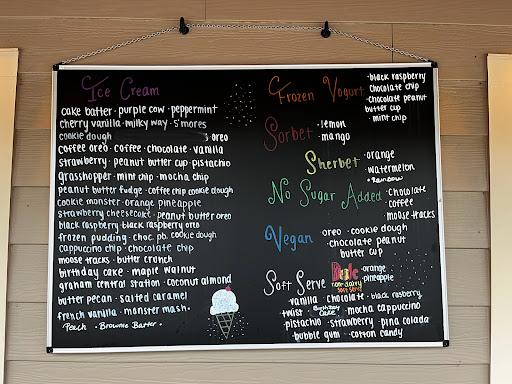 Ice Cream
cake batter · purple cow · peppermint
cherry vanilla · milky way · s'mores
cookie dough oreo
coffee oreo · coffee · chocolate · vanilla
strawberry · peanut butter cup · pistachio
grasshopper · mint chip · mocha chip
peanut butter fudge · coffee chip cookie dough
cookie monster · orange pineapple
strawberry cheesecake · peanut butter oreo
black raspberry · black raspberry oreo
frozen pudding · choc. pb. cookie dough
cappuccino chip · chocolate chip
moose tracks · butter crunch
birthday cake · maple walnut
graham central station · coconut almond
butter pecan · salted caramel
french vanilla · monster mash ·
Peach · Brownie Batter ·
Frozen Yogurt · black raspberry
chocolate chip
· chocolate peanut
butter cup
· mint chip
Sorbet · lemon
· mango
Sherbet · orange
· watermelon
· Rainbow
No Sugar Added · chocolate
coffee
moose tracks
Vegan · oreo · cookie dough
· chocolate peanut
butter cup
Soft Serve Dole non-dairy soft serve · orange
· pineapple
vanilla · chocolate · black raspberry
twist · Birthday Cake · mocha cappuccino
pistachio · strawberry · pina colada
· bubble gum · cotton candy